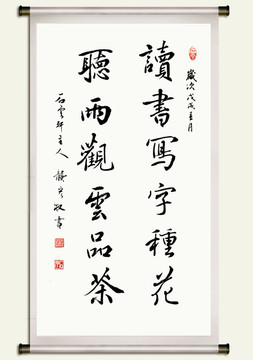 歲次戊戌五月
讀書寫字種花
聽雨觀雲品茶
石雲軒主人